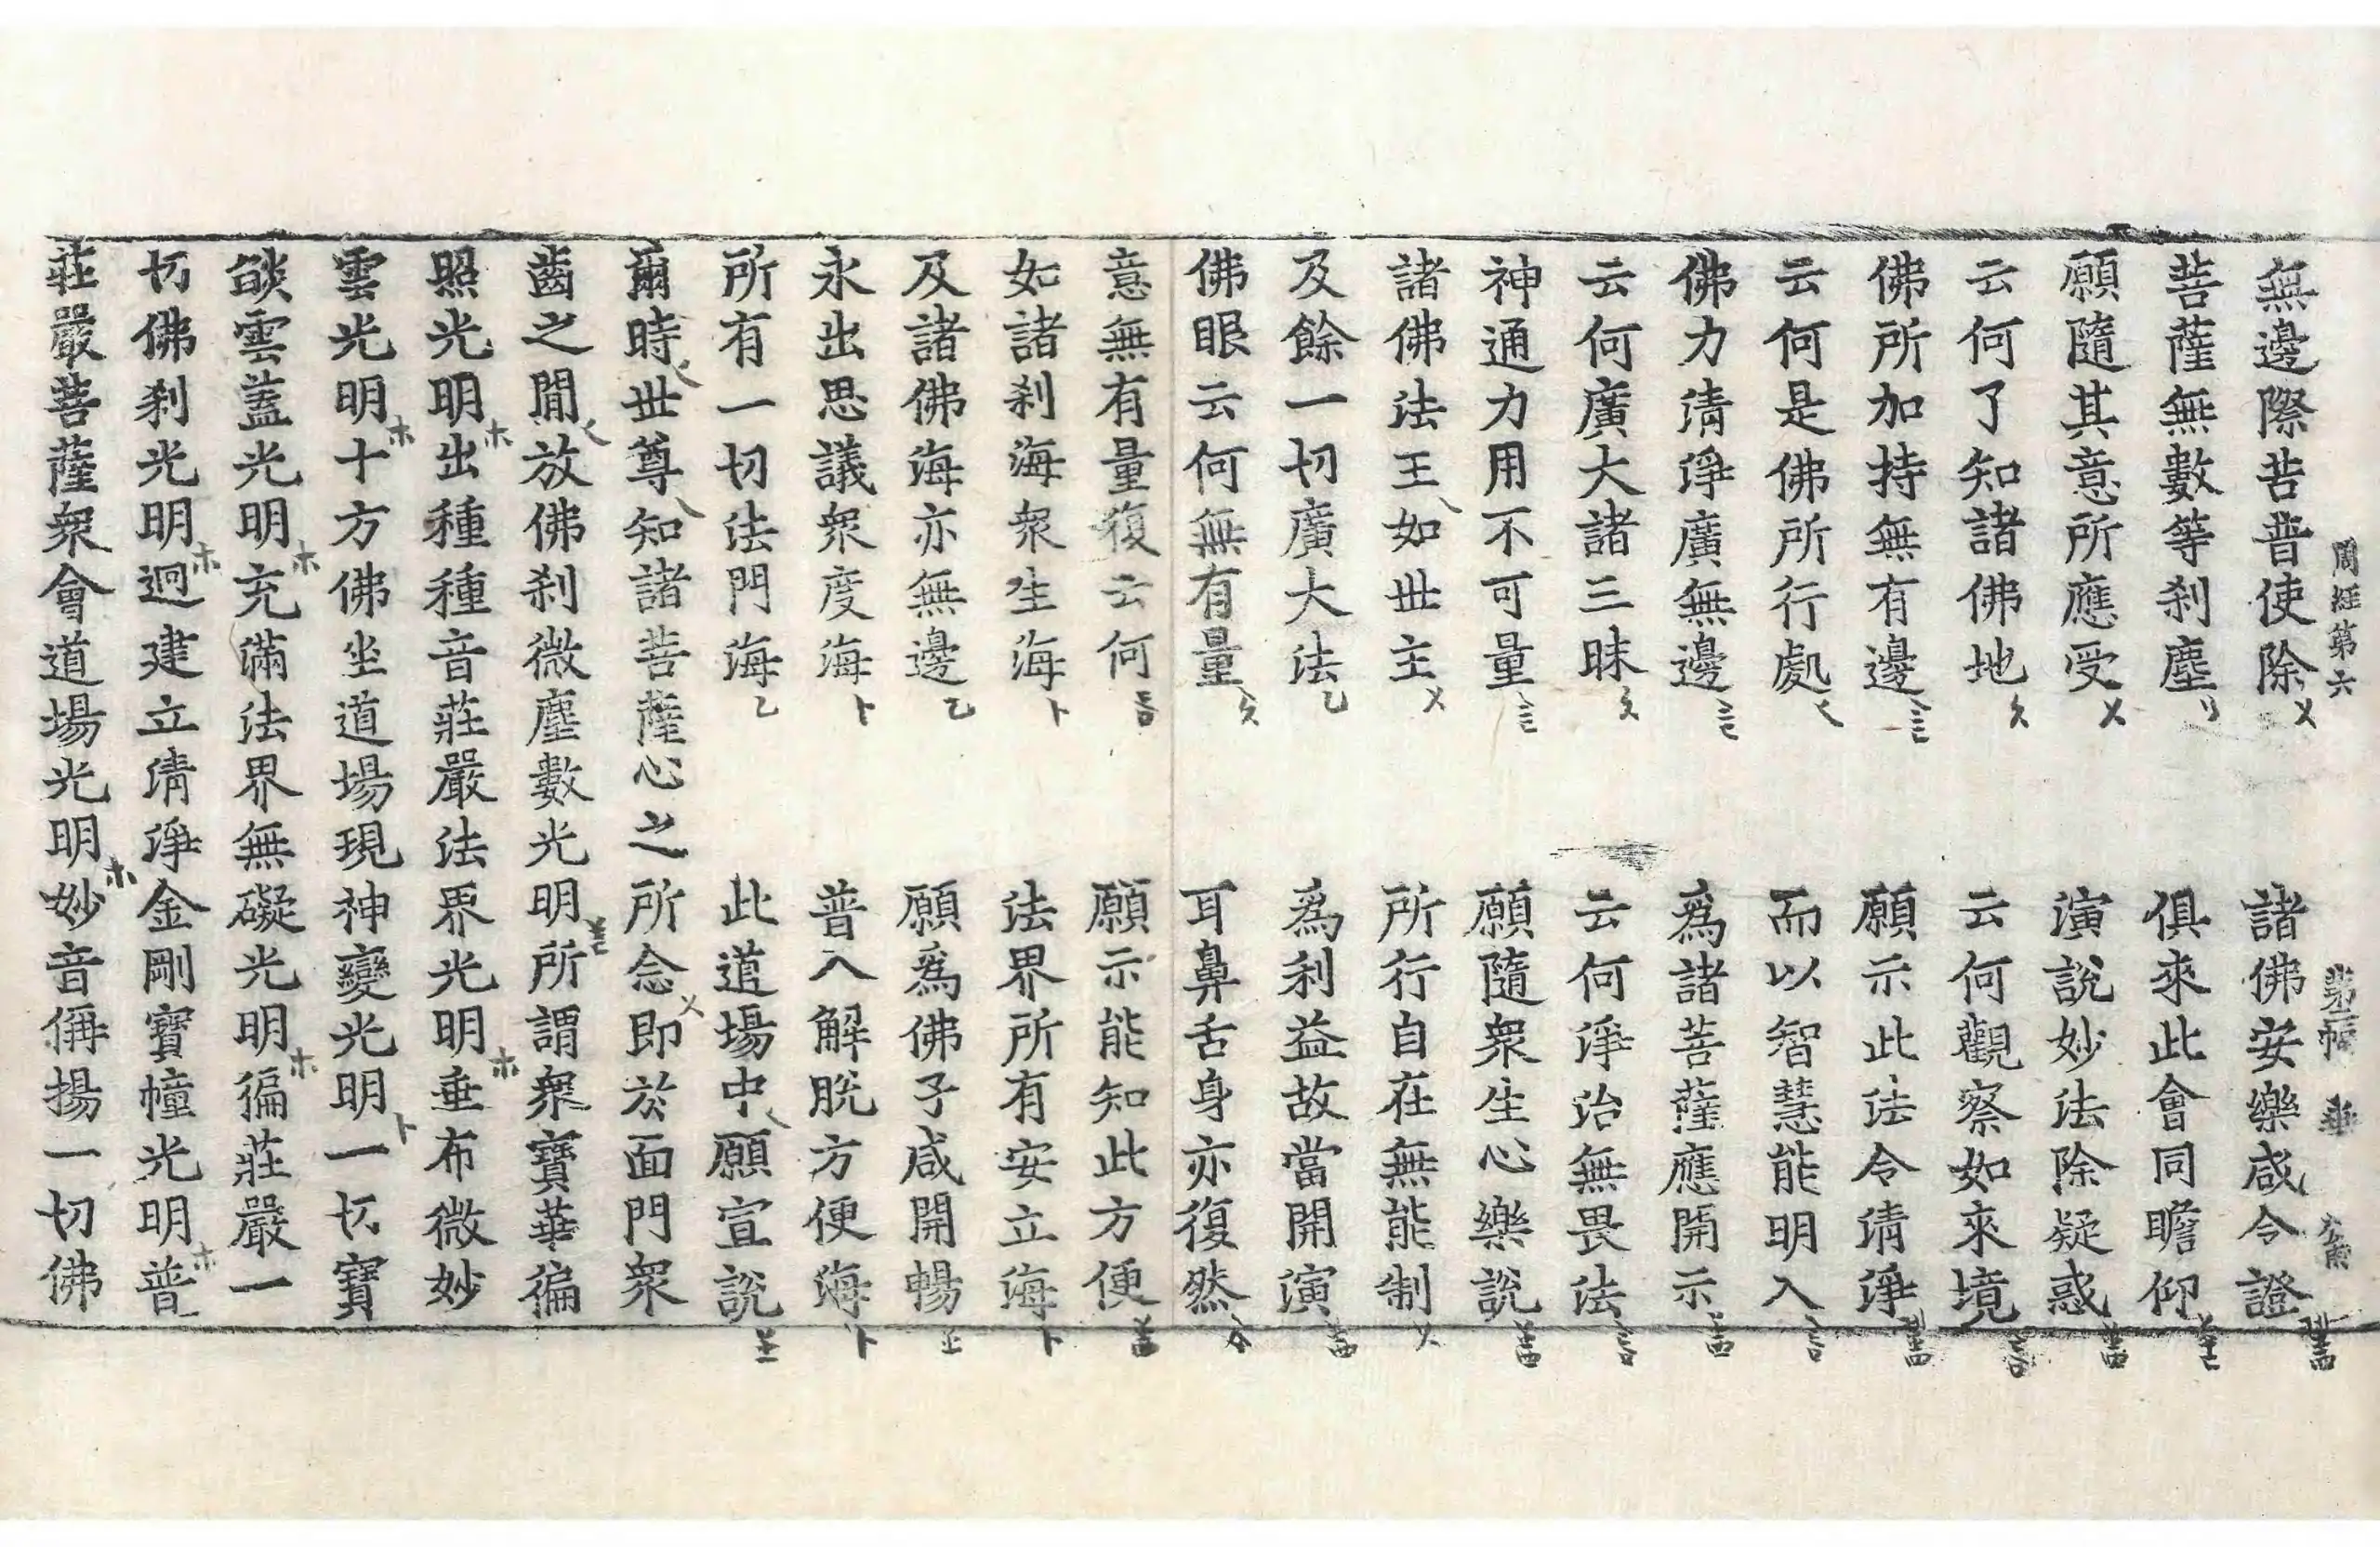 周經第六
無邊際苦普使除 諸佛安樂咸令證
菩薩無數等刹塵 俱來此會同瞻仰
願隨其意所應受 演說妙法除疑惑
云何了知諸佛地 云何觀察如來境
佛所加持無有邊 願示此法令清淨
云何是佛所行處 而以智慧能明入
佛力清淨廣無邊 爲諸菩薩應開示
云何廣大諸三昧 云何淨治無畏法
神通力用不可量 願隨衆生心樂說
諸佛法王如世主 所行自在無能制
及餘一切廣大法 爲利益故當開演
佛眼云何無有量 耳鼻舌身亦復然
意無有量復云何 願示能知此方便
如諸刹海衆生海 法界所有安立海
及諸佛海亦無邊 願爲佛子咸開暢
永出思議衆度海 普入解脫方便海
所有一切法門海 此道場中願宣說
爾時世尊知諸菩薩心之所念即於面門衆
齒之間放佛刹微塵數光明所謂衆寶華徧
照光明出種種音莊嚴法界光明垂布微妙
雲光明十方佛坐道場現神變光明一切寶
燄雲蓋光明充滿法界無礙光明徧莊嚴一
切佛刹光明迥建立清淨金剛寶幢光明普
莊嚴菩薩衆會道場光明妙音稱揚一切佛